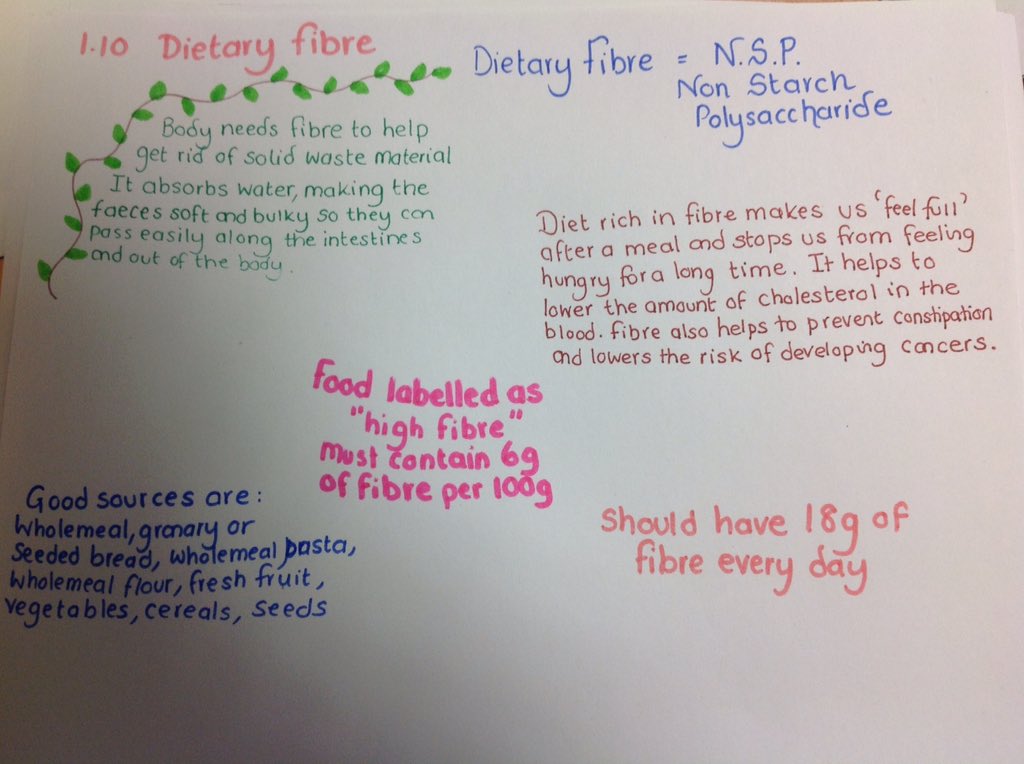 1.10 Dietary fibre
Dietary fibre = N.S.P.
Non Starch
Polysaccharide
Body needs fibre to help
get rid of solid waste material
It absorbs water, making the
faeces soft and bulky so they can
pass easily along the intestines
and out of the body.
Diet rich in fibre makes us 'feel full'
after a meal and stops us from feeling
hungry for a long time. It helps to
lower the amount of cholesterol in the
blood. Fibre also helps to prevent constipation
and lowers the risk of developing cancers.
Food labelled as
"high fibre"
must contain 6g
of fibre per 100g
Good sources are:
Wholemeal, granary or
Seeded bread, wholemeal pasta,
Wholemeal flour, fresh fruit,
vegetables, cereals, seeds
Should have 18g of
fibre every day